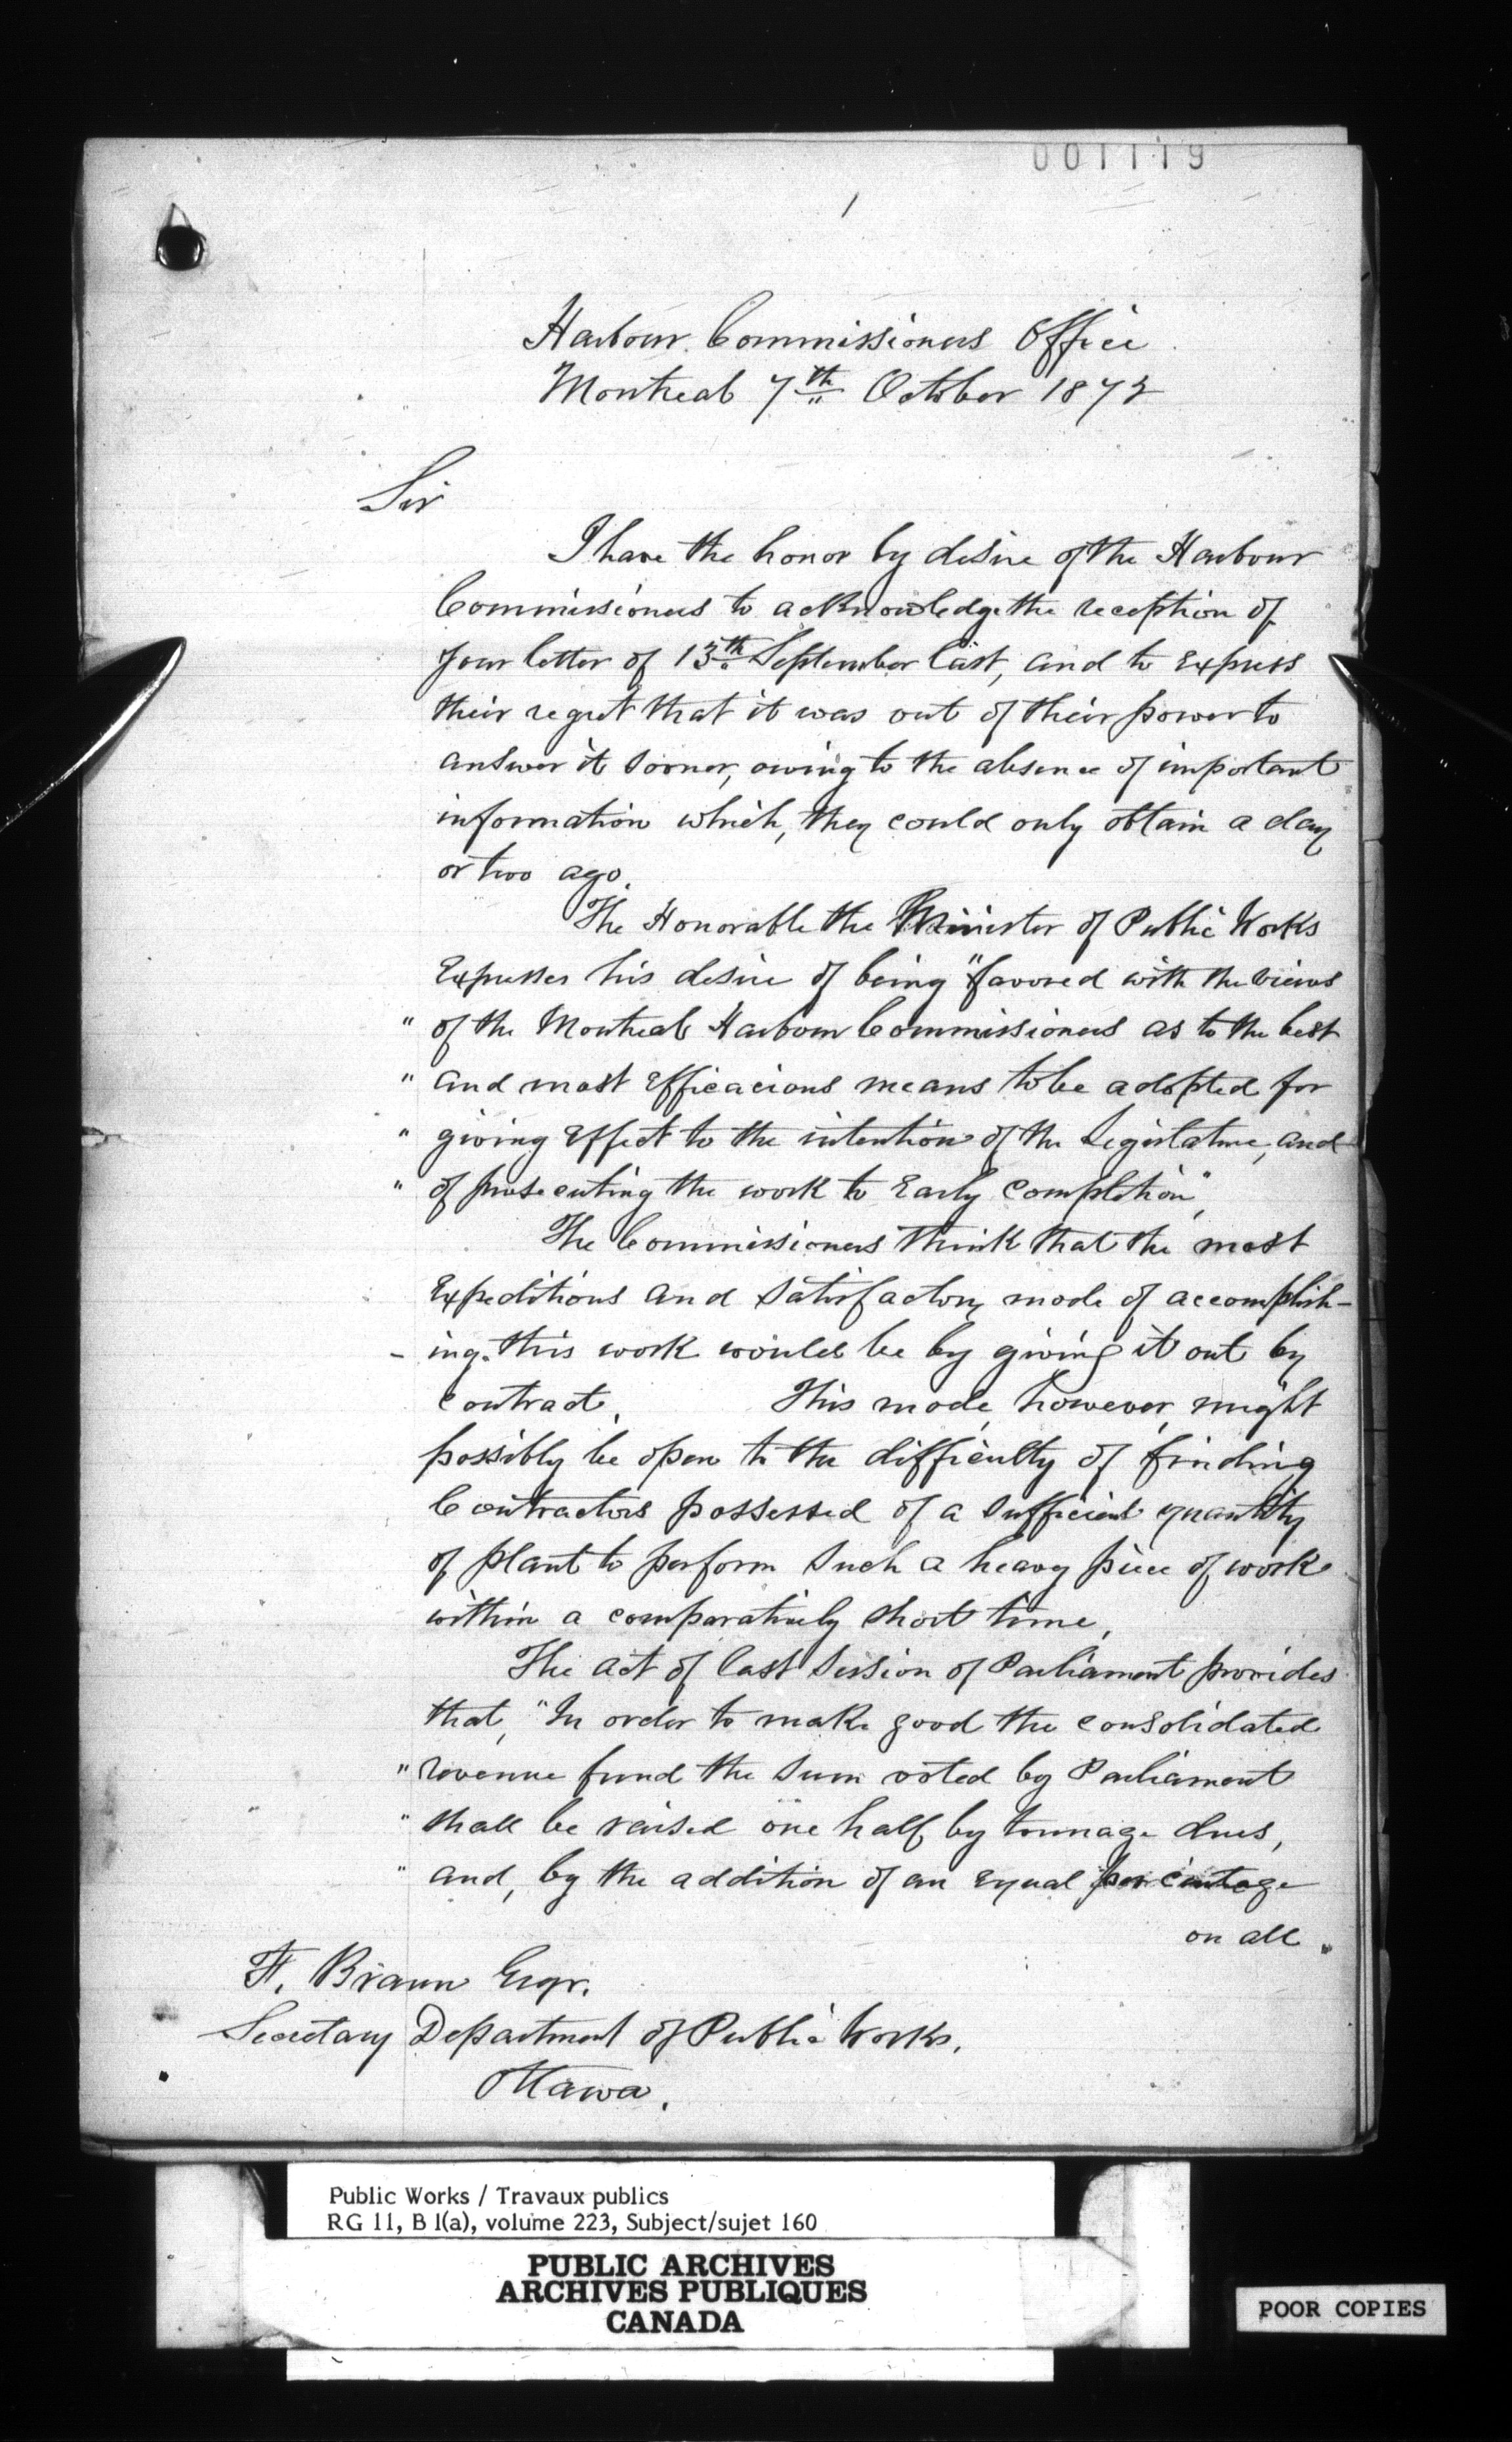 001119
1
Harbour Commissioners Office
Montreal 7th October 1873
Sir
I have the honor by desire of the Harbour
Commissioners to acknowledge the reception of
your letter of 13th September last, and to express
their regret that it was out of their power to
answer it sooner, owing to the absence of important
information which, they could only obtain a day
or two ago.
The Honorable the Minister of Public Works
Expresses his desire of being "favored with the views
" of the Montreal Harbour Commissioners as to the best
" and most Efficacious means to be adopted for
" giving Effect to the intention of the Legislature, and
" of prosecuting the work to Early Completion",
The Commissioners think that the most
Expeditious and satisfactory mode of accomplish-
- ing this work would be by giving it out by
contract. This mode, however, might
possibly be open to the difficulty of finding
Contractors possessed of a sufficient quantity
of plant to perform such a heavy piece of work
within a comparatively short time,
The act of last Session of Parliament provides
that, "In order to make good the consolidated
" revenue fund the sum voted by Parliament
" shall be raised one half by tonnage dues,
" and, by the addition of an Equal per centage
on all
F. Braun Esqr.
Secretary Department of Public Works.
Ottawa.
Public Works / Travaux publics
RG 11, B 1(a), volume 223, Subject/sujet 160
PUBLIC ARCHIVES
ARCHIVES PUBLIQUES
CANADA
POOR COPIES